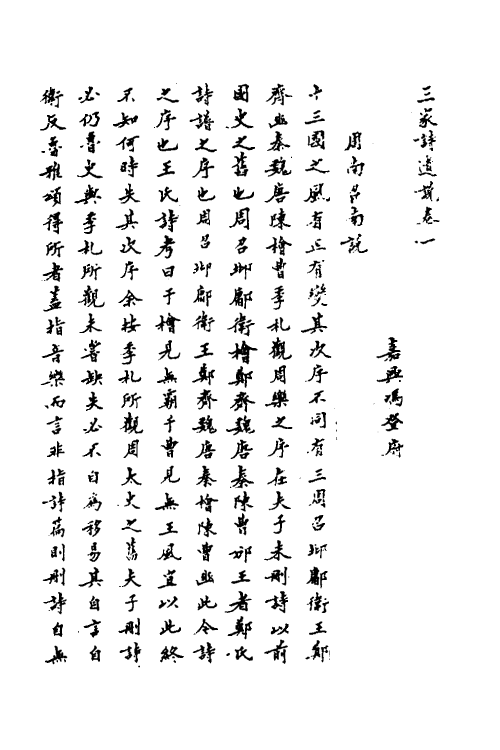 三家詩遺說卷一
嘉興馮登府
周南召南說
十三國之風有正有變其次序不同有三周召邶鄘衛王鄭
齊豳秦魏唐陳檜曹季札觀周樂之序在夫子未刪詩以前
國史之舊也周召邶鄘衛檜鄭齊魏唐秦陳曹豳王者鄭氏
詩譜之序也周召邶鄘衛王鄭齊魏唐秦檜陳曹豳此今詩
之序也王氏詩考曰于檜見無霸于曹見無王風宜以此終
不知何時失其次序余按季札所觀周太史之舊夫子刪詩
必仍魯史與季札所觀未嘗缺失必不自為移易其自言自
衛反魯雅頌得所者蓋指音樂而言非指詩篇則刪詩自無